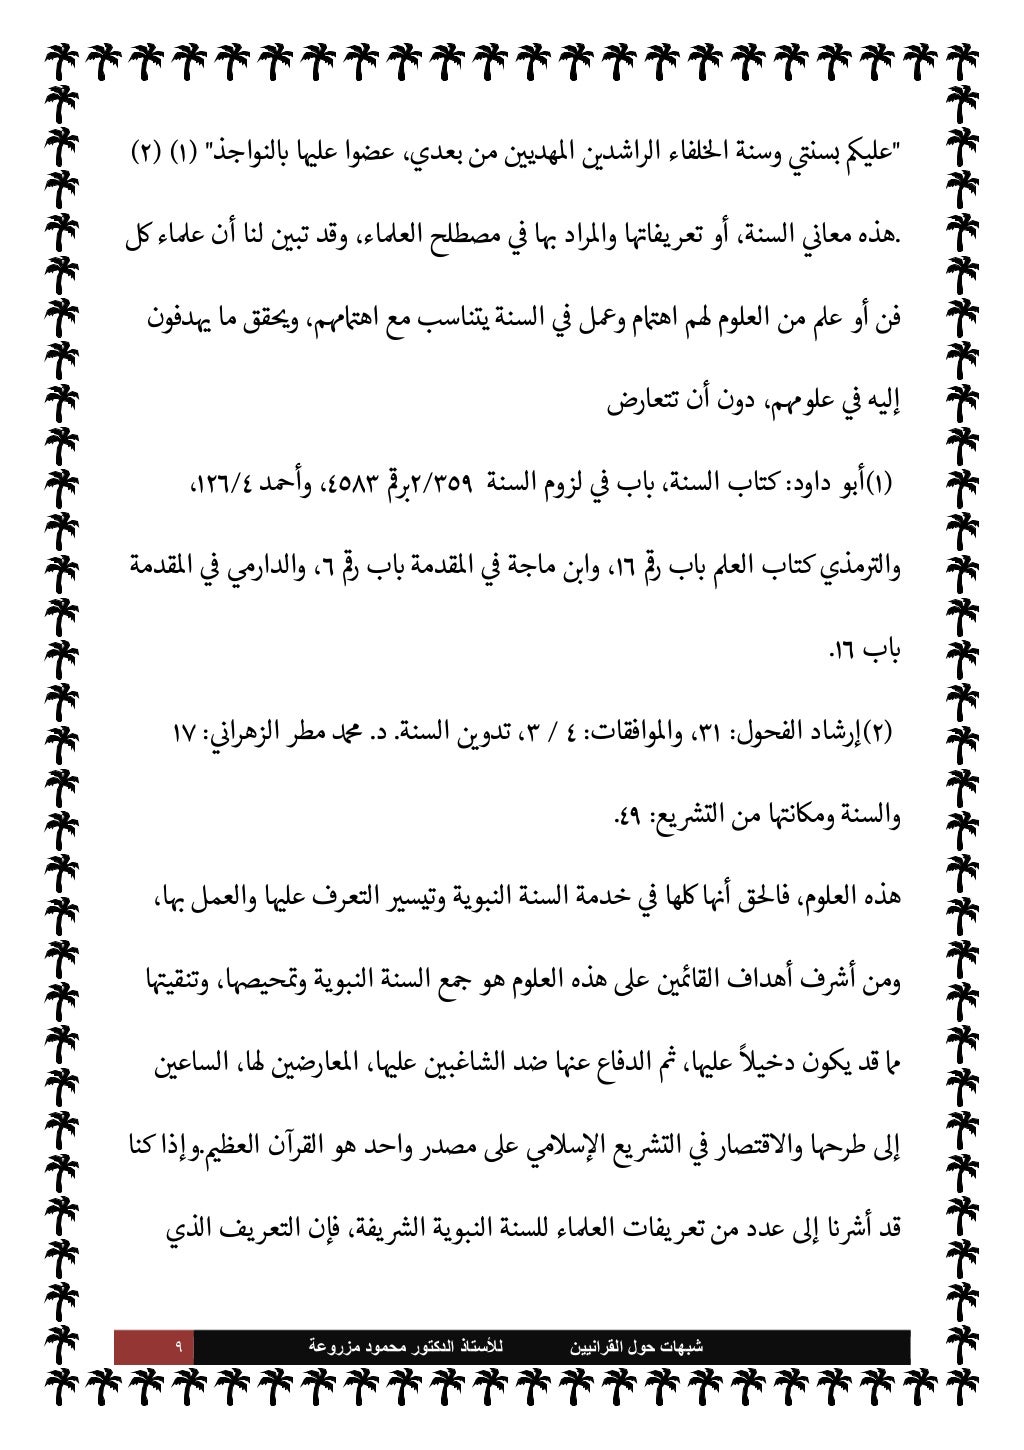 "عليكم بسنتي وسنة الخلفاء الراشدين المهديين من بعدي، عضوا عليها بالنواجذ" (١) (٢)
.هذه معاني السنة، أو تعريفاتها والمراد بها في مصطلح العلماء، وقد تبين لنا أن علماء كل
فن أو علم من العلوم لهم اهتمام وعمل في السنة يتناسب مع اهتمامهم، ويحقق ما يهدفون
إليه في علومهم، دون أن تتعارض
(١)أبو داود: كتاب السنة، باب في لزوم السنة ٢/٣٥٩برقم ٤٥٨٣، وأحمد ١٢٦/٤،
والترمذي كتاب العلم باب رقم ١٦، وابن ماجة في المقدمة باب رقم ٦، والدارمي في المقدمة
باب ١٦.
(٢)إرشاد الفحول: ٣١، والموافقات: ٤ / ٣، تدوين السنة. د. محمد مطر الزهراني: ١٧
والسنة ومكانتها من التشريع: ٤٩.
هذه العلوم، فالحق أنها كلها في خدمة السنة النبوية وتيسير التعرف عليها والعمل بها،
ومن أشرف أهداف القائمين على هذه العلوم هو جمع السنة النبوية وتمحيصها، وتنقيتها
مما قد يكون دخيلاً عليها، ثم الدفاع عنها ضد الشاغبين عليها، المعارضين لها، الساعين
إلى طرحها والاقتصار في التشريع الإسلامي على مصدر واحد هو القرآن العظيم.وإذا كنا
قد أشرنا إلى عدد من تعريفات العلماء للسنة النبوية الشريفة، فإن التعريف الذي
شبهات حول القرانيين للأستاذ الدكتور محمود مزروعة ٩